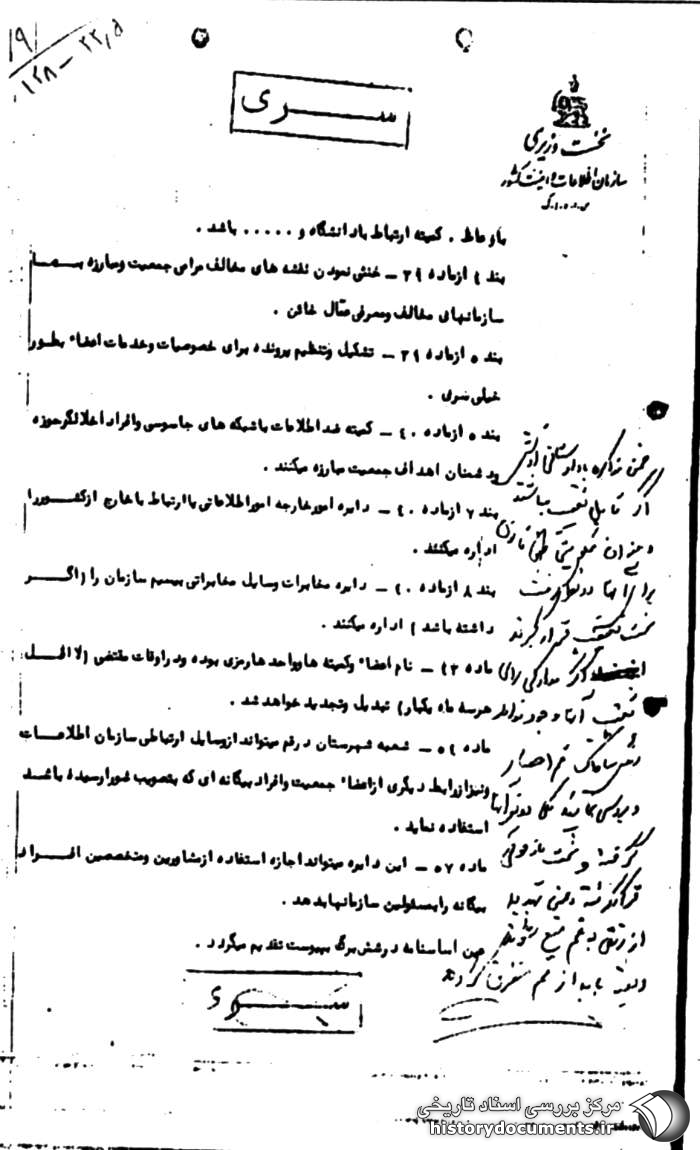 ۱۹
۱۲۸-۲۲٫۵
سری
نخست وزیری
سازمان اطلاعات و امنیت کشور
س.ا.و.ا.ک
با وعاظ. کمیته ارتباط با دانشگاه و ..... باشد.
بند ۴ از ماده ۳۹ - خنثی نمودن نقشه های مخالف مرامی جمعیت و مبارزه با
سازمانهای مخالف و معرفی عمال خائن.
بند ۵ از ماده ۳۹ - تشکیل و تنظیم پرونده برای خصوصیات و خدمات اعضاء بطور
خیلی سری.
بند ۵ از ماده ۴۰ - کمیته ضد اطلاعات با شبکه های جاسوسی و افراد اخلالگر حوزه
و دشمنان اهداف جمعیت مبارزه میکنند.
بند ۷ از ماده ۴۰ - دایره امور خارجه امور اطلاعاتی با ارتباط با خارج از کشور را
اداره میکنند.
بند ۸ از ماده ۴۰ - دایره مخابرات وسایل مخابراتی بیسیم سازمان را (اگر
داشته باشد) اداره میکنند.
ماده ۴۳ - نام اعضاء و کمیته ها و واحدها رمزی بوده و در اوقات مقتضی (لااقل
هر سه ماه یکبار) تبدیل و تجدید خواهد شد.
ماده ۵۴ - شعبه شهرستان در قم میتواند از وسایل ارتباطی سازمان اطلاعات
و نیز از رابط دیگری از اعضاء جمعیت و افراد بیگانه ای که بتصویب شورا رسیده باشد
استفاده نماید.
ماده ۵۷ - این دایره میتواند اجازه استفاده از مشاورین و متخصصین افراد
بیگانه را بمسئولین سازمانها بدهد.
عین اساسنامه در شش برگ بپیوست تقدیم میگردد.
ضمن مذاکره با دادرسی ارتش
اگر قابل تعقیب میباشند
برای آنها
تحت تعقیب قرار گیرند
اگر مدارکی برای
تعقیب آنها وجود ندارد
رئیس ساواک قم احضار
گرفته و تحت بازجویی
قرار گرفته
سری
مرکز بررسی اسناد تاریخی
historydocuments.ir